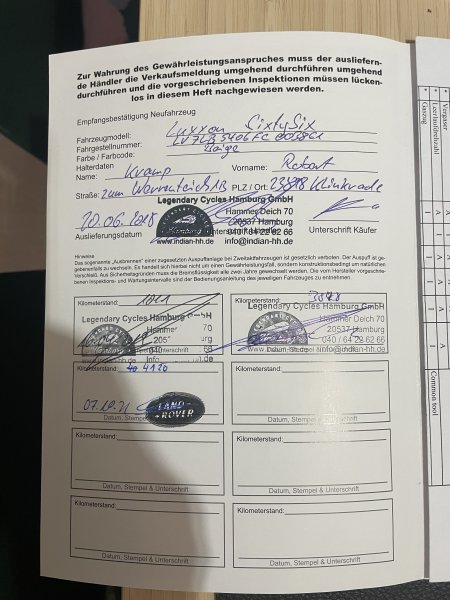 Zur Wahrung des Gewährleistungsanspruches muss der ausliefern-
de Händler die Verkaufsmeldung umgehend durchführen umgehend
durchführen und die vorgeschriebenen Inspektionen müssen lücken-
los in diesem Heft nachgewiesen werden.
Empfangsbestätigung Neufahrzeug
Fahrzeugmodell: Luxxon SixtySix
Fahrgestellnummer:
Farbe / Farbcode: Beige
Halterdaten
Name: Kramp Vorname: Robert
Straße: Zum PLZ / Ort: 23898 Klinkrade
Legendary Cycles Hamburg GmbH
Hammer Deich 70
20537 Hamburg
20.06.2018 040 / 64 22 62 66
www.indian-hh.de info@indian-hh.de
Auslieferungsdatum Unterschrift Käufer
Hinweise
Das sogenannte „Ausbrennen" einer zugesetzten Auspuffanlage bei Zweitakfahrzeugen ist gesetzlich verboten. Der Auspuff ist ge-
gebenenfalls zu wechseln. Es handelt sich hierbei nicht um einen Gewährleistungsfall, sondern konstruktionsbedingt um natürlichen
Verschleiß. Aus Sicherheitsgründen muss die Bremsflüssigkeit alle zwei Jahre gewechselt werden. Die vom Hersteller vorgeschrie-
benen Inspektions- und Wartungsintervalle sind der Bedienungsanleitung des jeweiligen Fahrzeuges zu entnehmen.
Kilometerstand: 1011
Legendary Cycles Hamburg GmbH
Hammer 70
www.indian-hh.de
Kilometerstand:
Legendary Cycles Hamburg GmbH
Hammer Deich 70
20537 Hamburg
040 / 64 22 62 66
www.indian-hh.de info@indian-hh.de
Kilometerstand: 4120
07.10.21 LAND ROVER
Datum, Stempel
Kilometerstand:
Datum, Stempel & Unterschrift
Kilometerstand:
Datum, Stempel & Unterschrift
Kilometerstand:
Datum, Stempel & Unterschrift
Kilometerstand:
Datum, Stempel & Unterschrift
Kilometerstand:
Datum, Stempel & Unterschrift
* Vergaser
* Leerlaufdrehzahl
* Gaszug
Common tool